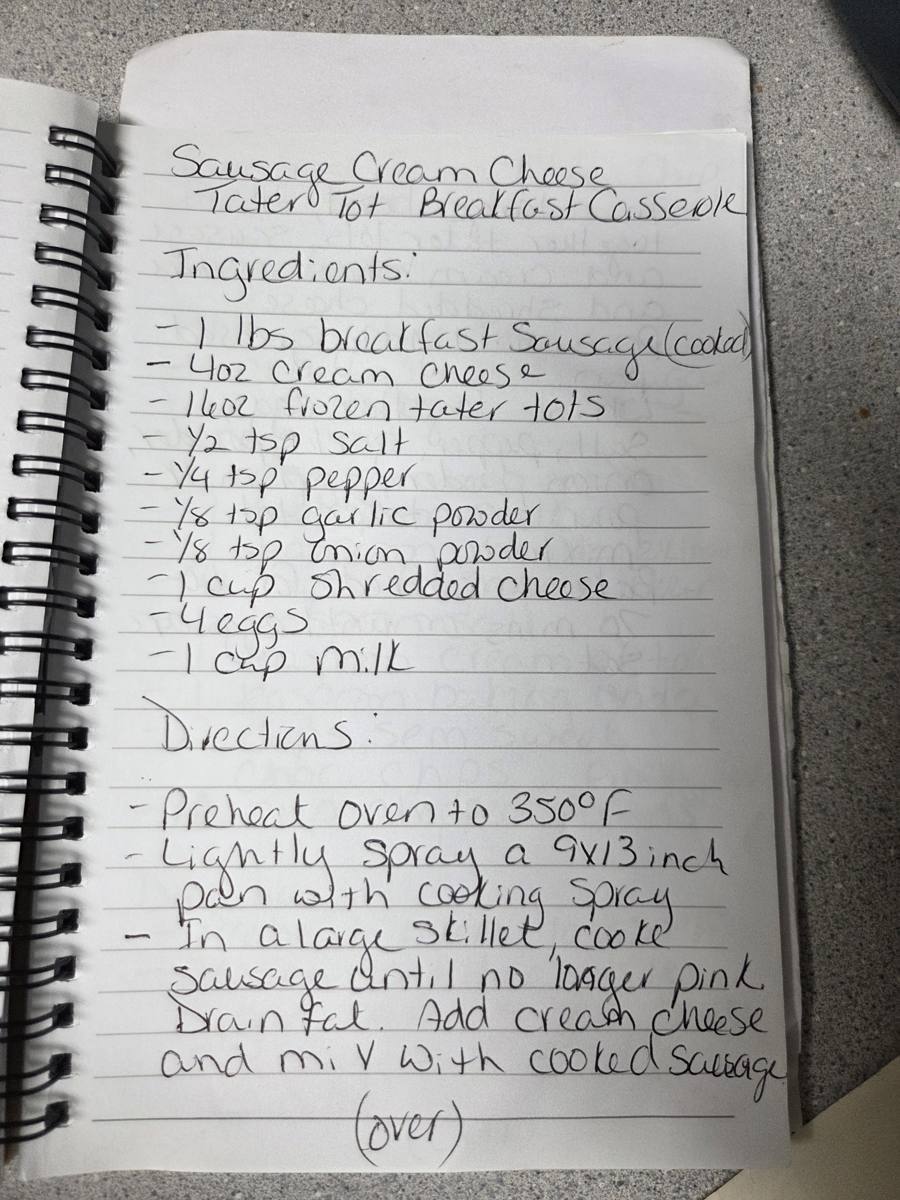 Sausage Cream Cheese
Tater Tot Breakfast Casserole
Ingredients:
- 1 lbs breakfast Sausage (cooked)
- 4oz cream cheese
- 16oz frozen tater tots
- 1/2 tsp salt
- 1/4 tsp pepper
- 1/8 tsp garlic powder
- 1/8 tsp onion powder
- 1 cup shredded cheese
- 4 eggs
- 1 cup milk
Directions:
- Preheat oven to 350° F
- Lightly spray a 9x13 inch
pan with cooking spray
- In a large skillet, cooke
sausage until no longer pink.
Drain fat. Add cream cheese
and mix with cooked sausage
(over)